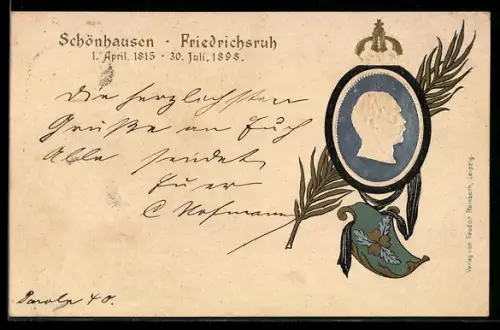 Schönhausen · Friedrichsruh
1. April. 1815 - 30. Juli. 1898.
Die herzlichsten
Grüße an Euch
Alle sendet
Euer
C Hofmann
40.
Verlag von Feodor Reinboth, Leipzig.